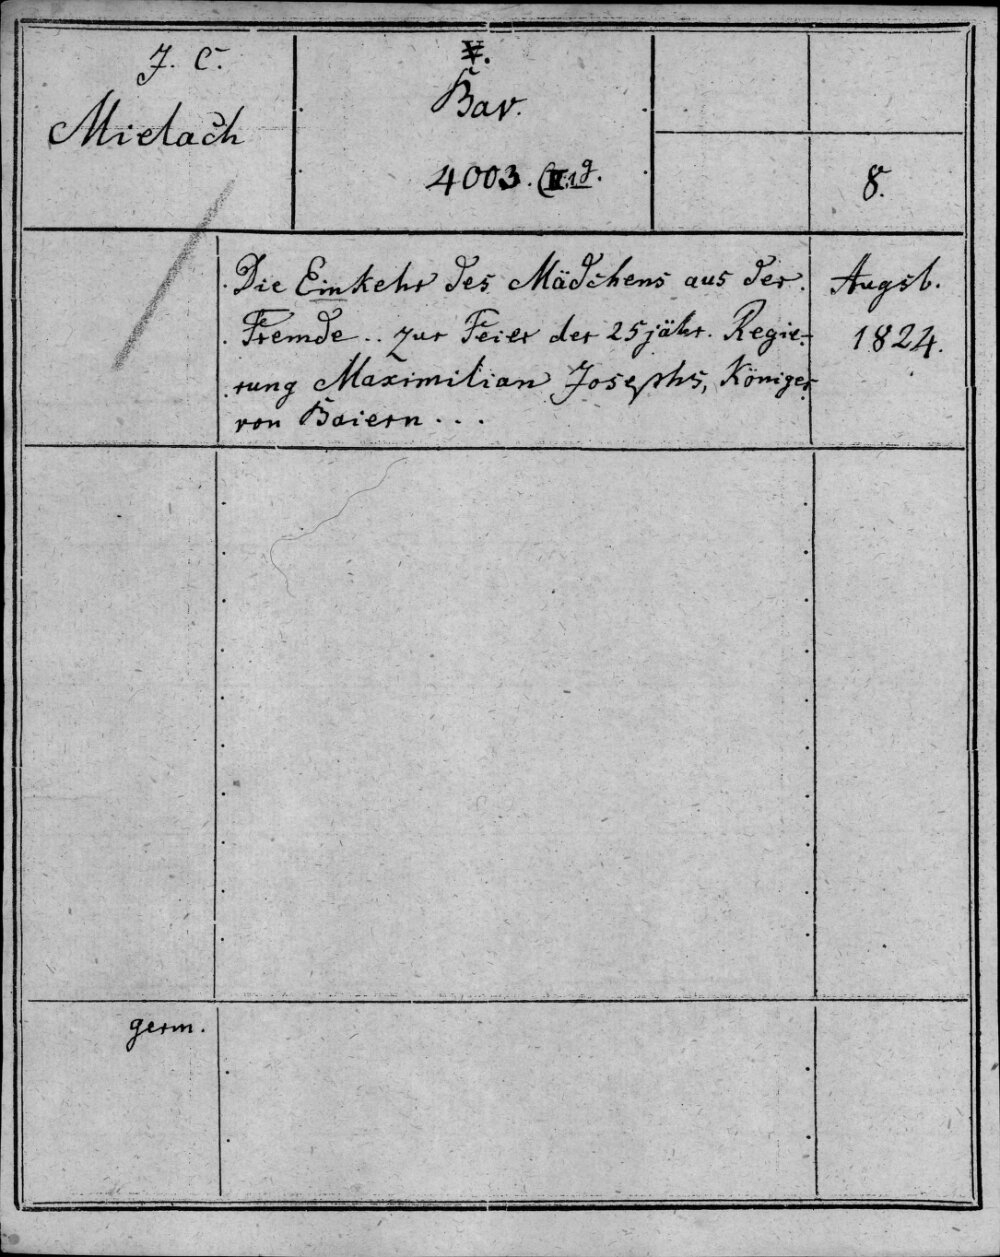 J. C.
Mielach
Bav.
4003. (II,1g.
8.
Die Einkehr des Mädchens aus der
Fremde .. zur Feier der 25jähr. Regie-
rung Maximilian Josephs, Königes
von Baiern . . .
Augsb.
1824.
germ.